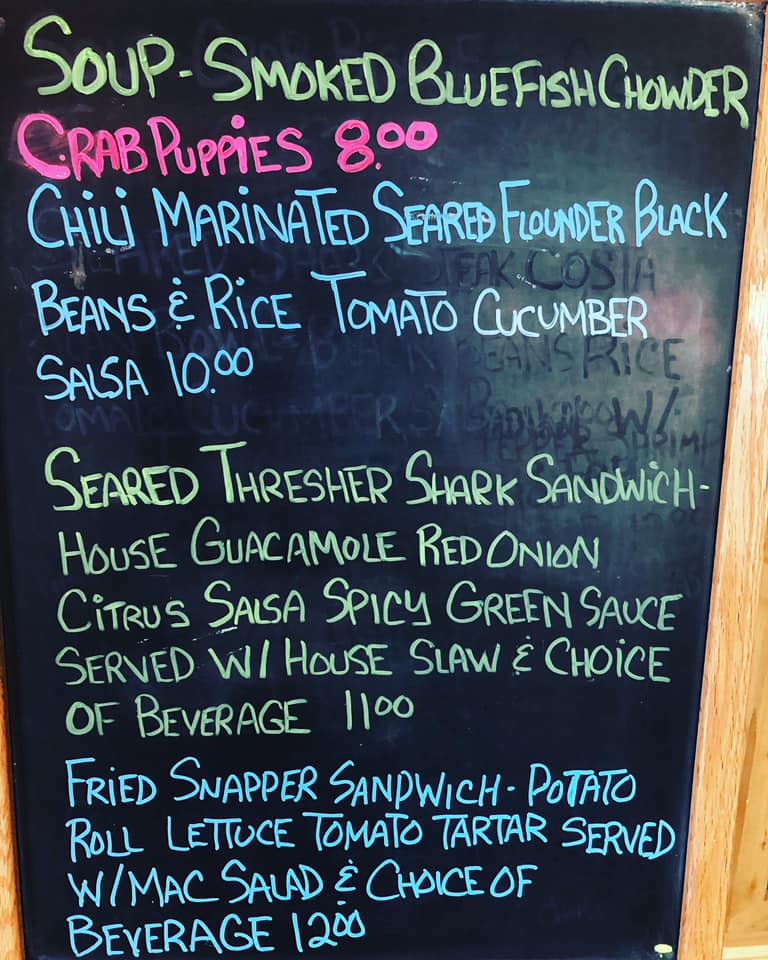 SOUP-SMOKED BLUEFISH CHOWDER
CRAB PUPPIES 8.00
CHILI MARINATED SEARED FLOUNDER BLACK
BEANS & RICE TOMATO CUCUMBER
SALSA 10.00
SEARED THRESHER SHARK SANDWICH-
HOUSE GUACAMOLE RED ONION
CITRUS SALSA SPICY GREEN SAUCE
SERVED W/ HOUSE SLAW & CHOICE
OF BEVERAGE 1100
FRIED SNAPPER SANDWICH - POTATO
ROLL LETTUCE TOMATO TARTAR SERVED
W/MAC SALAD & CHOICE OF
BEVERAGE 1200